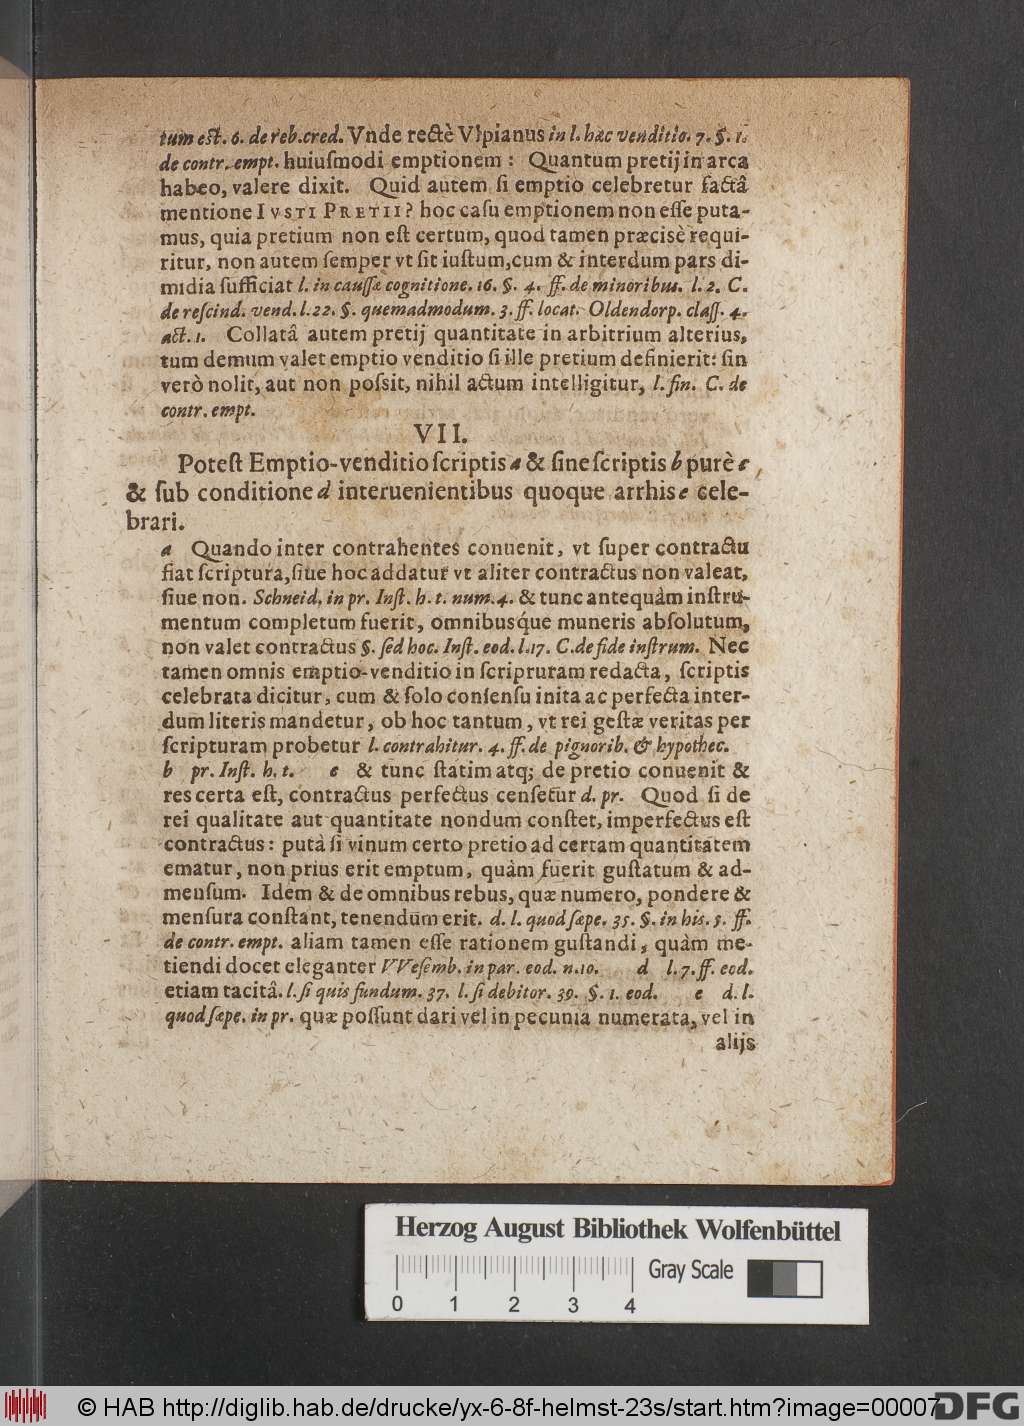 tum eſt. 6. de reb. cred. Vnde rectè Vlpianus in l. hæc venditio. 7. §. 1.
de contr. empt. huiuſmodi emptionem: Quantum pretij in arca
habeo, valere dixit. Quid autem ſi emptio celebretur factâ
mentione IVSTI PRETII? hoc caſu emptionem non eſſe puta-
mus, quia pretium non eſt certum, quod tamen præcisè requi-
ritur, non autem ſemper vt ſit iuſtum, cum & interdum pars di-
midia ſufficiat l. in cauſſæ cognitione. 16. §. 4. ff. de minoribus. l. 2. C.
de reſcind. vend. l. 22. §. quemadmodum. 3. ff. locat. Oldendorp. claſſ. 4.
act. 1. Collatâ autem pretij quantitate in arbitrium alterius,
tum demum valet emptio venditio ſi ille pretium definierit: ſin
verò nolit, aut non poſsit, nihil actum intelligitur, l. fin. C. de
contr. empt.
VII.
Poteſt Emptio-venditio ſcriptis a & ſine ſcriptis b purè c
& ſub conditione d interuenientibus quoque arrhis e cele-
brari.
a Quando inter contrahentes conuenit, vt ſuper contractu
fiat ſcriptura, ſiue hoc addatur vt aliter contractus non valeat,
ſiue non. Schneid. in pr. Inſt. h. t. num. 4. & tunc antequàm inſtru-
mentum completum fuerit, omnibusq́ue muneris abſolutum,
non valet contractus §. ſed hoc. Inſt. eod. l. 17. C. de fide inſtrum. Nec
tamen omnis emptio-venditio in ſcripruram redacta, ſcriptis
celebrata dicitur, cum & ſolo conſenſu inita ac perfecta inter-
dum literis mandetur, ob hoc tantum, vt rei geſtæ veritas per
ſcripturam probetur l. contrahitur. 4. ff. de pignorib. & hypothec.
b pr. Inſt. h. t. c & tunc ſtatim atq; de pretio conuenit &
res certa eſt, contractus perfectus cenſetur d. pr. Quod ſi de
rei qualitate aut quantitate nondum conſtet, imperfectus eſt
contractus: putà ſi vinum certo pretio ad certam quantitatem
ematur, non prius erit emptum, quàm fuerit guſtatum & ad-
menſum. Idem & de omnibus rebus, quæ numero, pondere &
menſura conſtant, tenendum erit. d. l. quod ſæpe. 35. §. in his. 5. ff.
de contr. empt. aliam tamen eſſe rationem guſtandi, quàm me-
tiendi docet eleganter VVeſemb. in par. eod. n. 10. d l. 7. ff. eod.
etiam tacitâ. l. ſi quis fundum. 37. l. ſi debitor. 39. §. 1. eod. e d. l.
quod ſæpe. in pr. quæ poſſunt dari vel in pecunia numerata, vel in
alijs
Herzog August Bibliothek Wolfenbüttel
Gray Scale
0 1 2 3 4
© HAB http://diglib.hab.de/drucke/yx-6-8f-helmst-23s/start.htm?image=00007
DFG